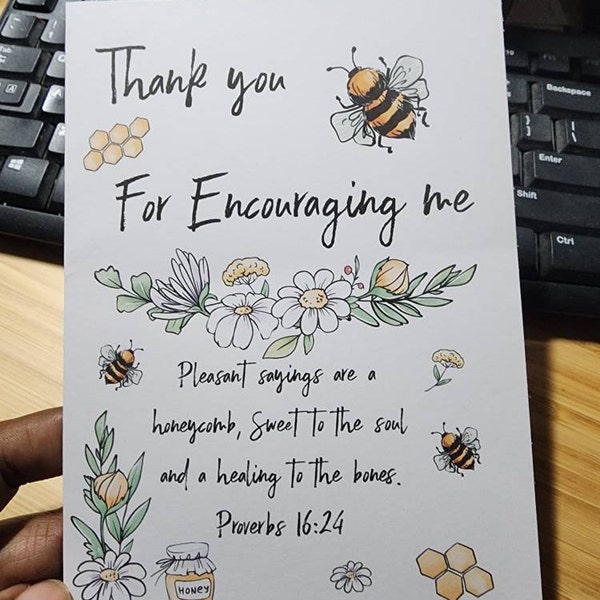 Thank you
For Encouraging me
Pleasant sayings are a
honeycomb, Sweet to the soul
and a healing to the bones.
Proverbs 16:24
HONEY
Tab
A
Backspace
Enter
Shift
Ctrl